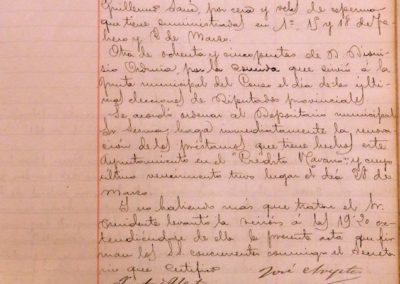 Guillermo Sanz, por cera y velas de esperma
que tiene suministradas en 1º, 15 y 18 de Fe-
brero y 2 de Marzo.
Otra de ochenta y cinco pesetas de D. Dioni-
sio Orduña, por la comida que sirvió á la
Junta municipal del Censo el día de las últi-
mas elecciones de Diputados provinciales.
Se acordó ordenar al Depositario municipal
Sr. haga inmediatamente la renova-
ción de los préstamos que tiene hechos este
Ayuntamiento en el "Crédito Navarro", y cuyo
último vencimiento tuvo lugar el día 28 de
Marzo.
Y no habiendo más que tratar el Sr.
Presidente levantó la sesión á las 19-20 ex-
tendiéndose de ella la presente acta que fir-
man los Sres. concurrentes conmigo el Secreta-
rio que certifico.
José